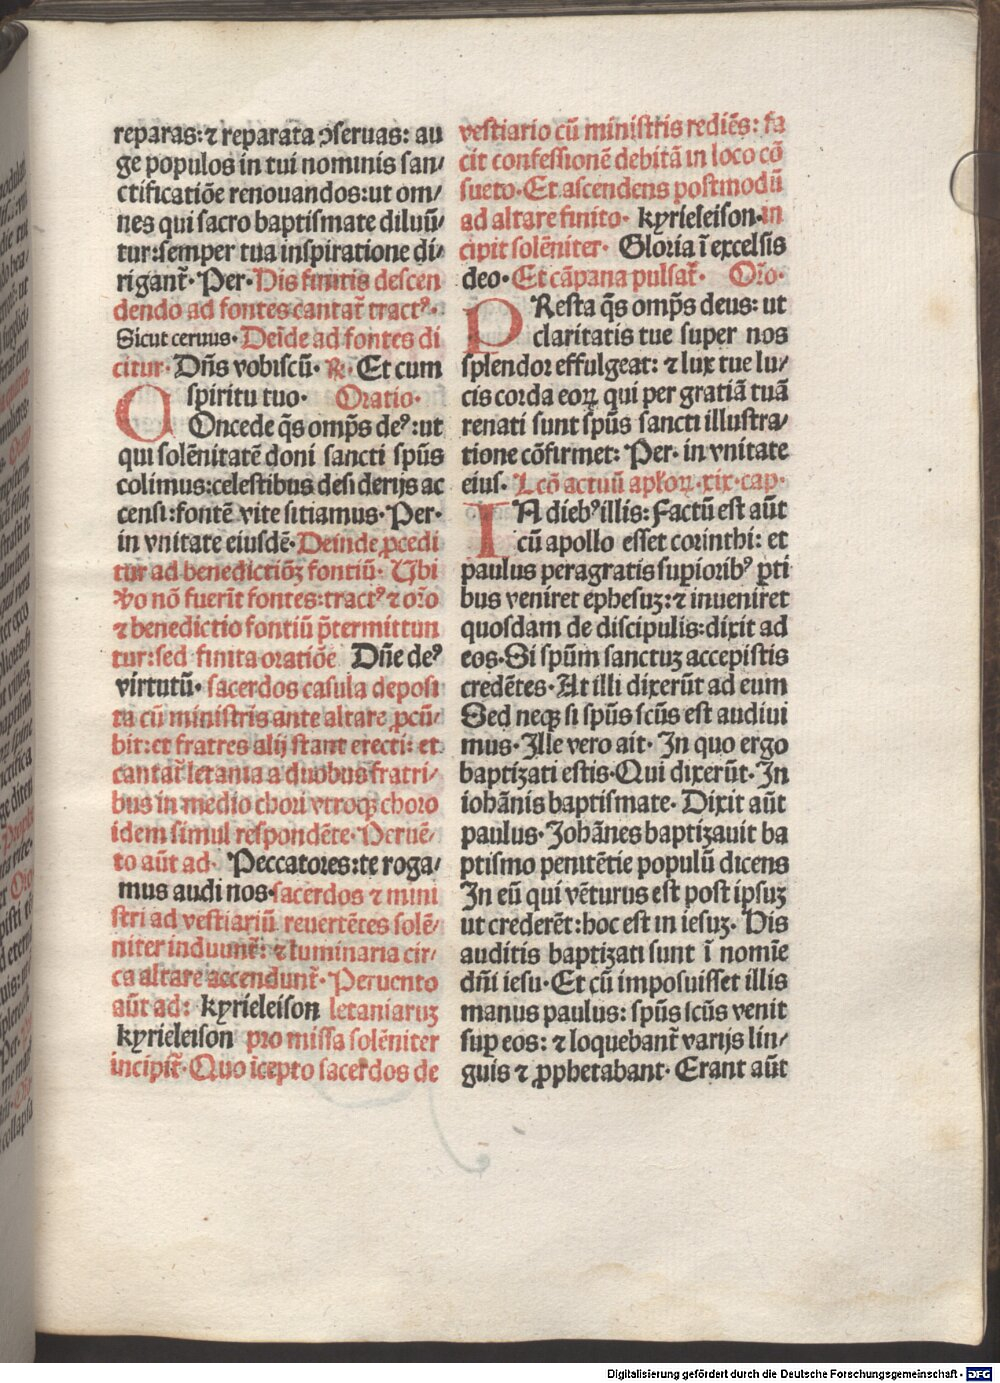 reparas: ⁊ reparata ꝯseruas: au
ge populos in tui nominis san/
ctificatiõe renouandos: ut om/
nes qui sacro baptismate diluũ/
tur: semper tua inspiratione di/
rigant᷑. Per. His finitis descen
dendo ad fontes cantat᷑ tractꝰ.
Sicut ceruus. Deĩde ad fontes di
citur. Dñs vobiscũ. ℞. Et cum
spiritu tuo. Oratio.
COncede q̃s omp̃s deꝰ: ut
qui solẽnitatẽ doni sancti sp̃us
colimus: celestibus desiderijs ac
censi: fontẽ vite sitiamus. Per.
in vnitate eiusdẽ. Deinde ꝓcedi
tur ad benedictiõꝫ fontiũ. Ubi
v̊o nõ fuerĩt fontes: tractꝰ ⁊ or̃o
⁊ benedictio fontiũ p̃termittun
tur: sed finita oratiõe Dñe deꝰ
virtutũ. sacerdos casula deposi
ta cũ ministris ante altare ꝓcũ/
bit: et fratres alij stant erecti: et
cantat᷑ letania a duobus fratri/
bus in medio chori vtroqꝫ choro
idem simul respondẽte. Peruẽ/
to aũt ad. Peccatores: te roga/
mus audi nos. sacerdos ⁊ mini
stri ad vestiariũ reuertẽtes solẽ/
niter induunt᷑: ⁊ luminaria cir/
ca altare accendunt᷑. Peruento
aũt ad: kyrieleison letaniaruꝫ
kyrieleison pro missa solẽniter
incipit᷑. Quo ĩcepto sacerdos de
vestiario cũ ministris rediẽs: fa
cit confessionẽ debitã in loco cõ
sueto. Et ascendens postmodũ
ad altare finito. kyrieleison. in
cipit solẽniter. Gloria ĩ excelsis
deo. Et cãpana pulsat᷑. Or̃o.
PResta q̃s omp̃s deus: ut
claritatis tue super nos
splendor effulgeat: ⁊ lux tue lu/
cis corda eoꝝ qui per gratiã tuã
renati sunt sp̃us sancti illustra/
tione cõfirmet: Per. in vnitate
eius. Lcõ actuũ apl̃oꝝ. xix. cap.
IN diebꝰ illis: Factũ est aũt
cũ apollo esset corinthi: et
paulus peragratis supioribꝰ ꝑti
bus veniret ephesuꝫ: ⁊ inueniret
quosdam de discipulis: dixit ad
eos. Si sp̃um sanctuꝫ accepistis
credẽtes. At illi dixerũt ad eum
Sed neqꝫ si sp̃us sc̃us est audiui
mus. Ille vero ait. In quo ergo
baptizati estis. Qui dixerũt. In
iohãnis baptismate. Dixit aũt
paulus. Johãnes baptizauit ba
ptismo penitẽtie populũ dicens
In eũ qui vẽturus est post ipsuꝫ
ut crederẽt: hoc est in iesuꝫ. His
auditis baptizati sunt ĩ nomĩe
dñi iesu. Et cũ imposuisset illis
manus paulus: sp̃us sc̃us venit
suꝑ eos: ⁊ loquebant᷑ varijs lin/
guis ⁊ ꝓphetabant. Erant aũt
Digitalisierung gefördert durch die Deutsche Forschungsgemeinschaft - DFG